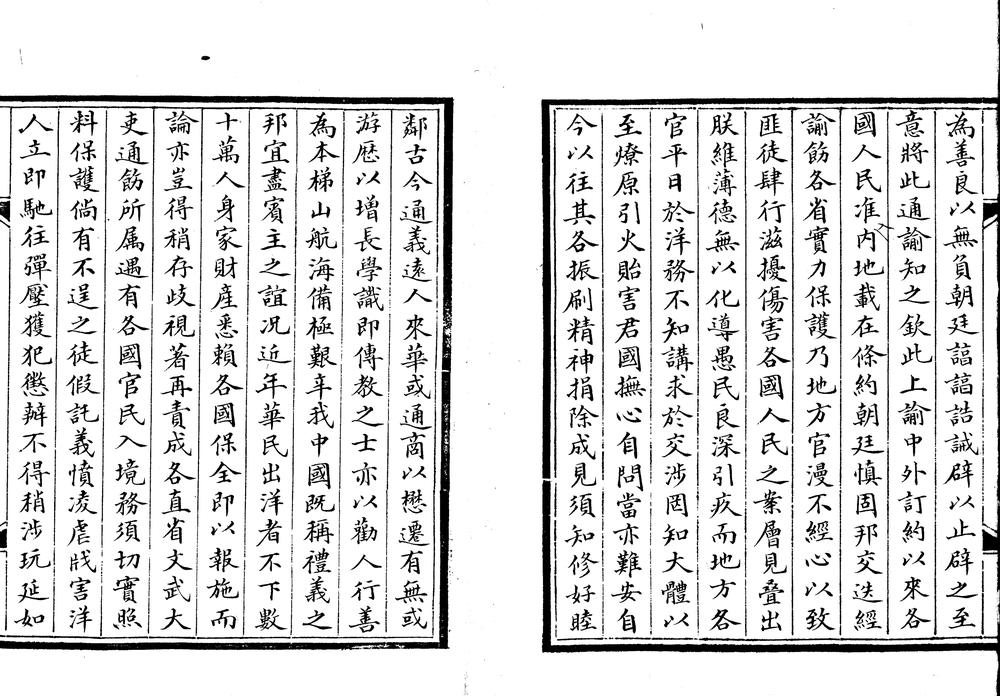 為善良以無負朝廷諄諄誥誡辟以止辟之至
意將此通諭知之欽此上諭中外訂約以來各
國人民准入內地載在條約朝廷慎固邦交迭經
諭飭各省實力保護乃地方官漫不經心以致
匪徒肆行滋擾傷害各國人民之案層見疊出
朕維薄德無以化導愚民良深引疚而地方各
官平日於洋務不知講求於交涉罔知大體以
至燎原引火貽害君國撫心自問當亦難安自
今以往其各振刷精神捐除成見須知修好睦
鄰古今通義遠人來華或通商以懋遷有無或
游歷以增長學識即傳教之士亦以勸人行善
為本梯山航海備極艱辛我中國既稱禮義之
邦宜盡賓主之誼况近年華民出洋者不下數
十萬人身家財產悉賴各國保全即以報施而
論亦豈得稍存歧視著再責成各直省文武大
吏通飭所属遇有各國官民入境務須切實照
料保護倘有不逞之徒假託義憤凌虐戕害洋
人立即馳往彈壓獲犯懲辦不得稍涉玩延如